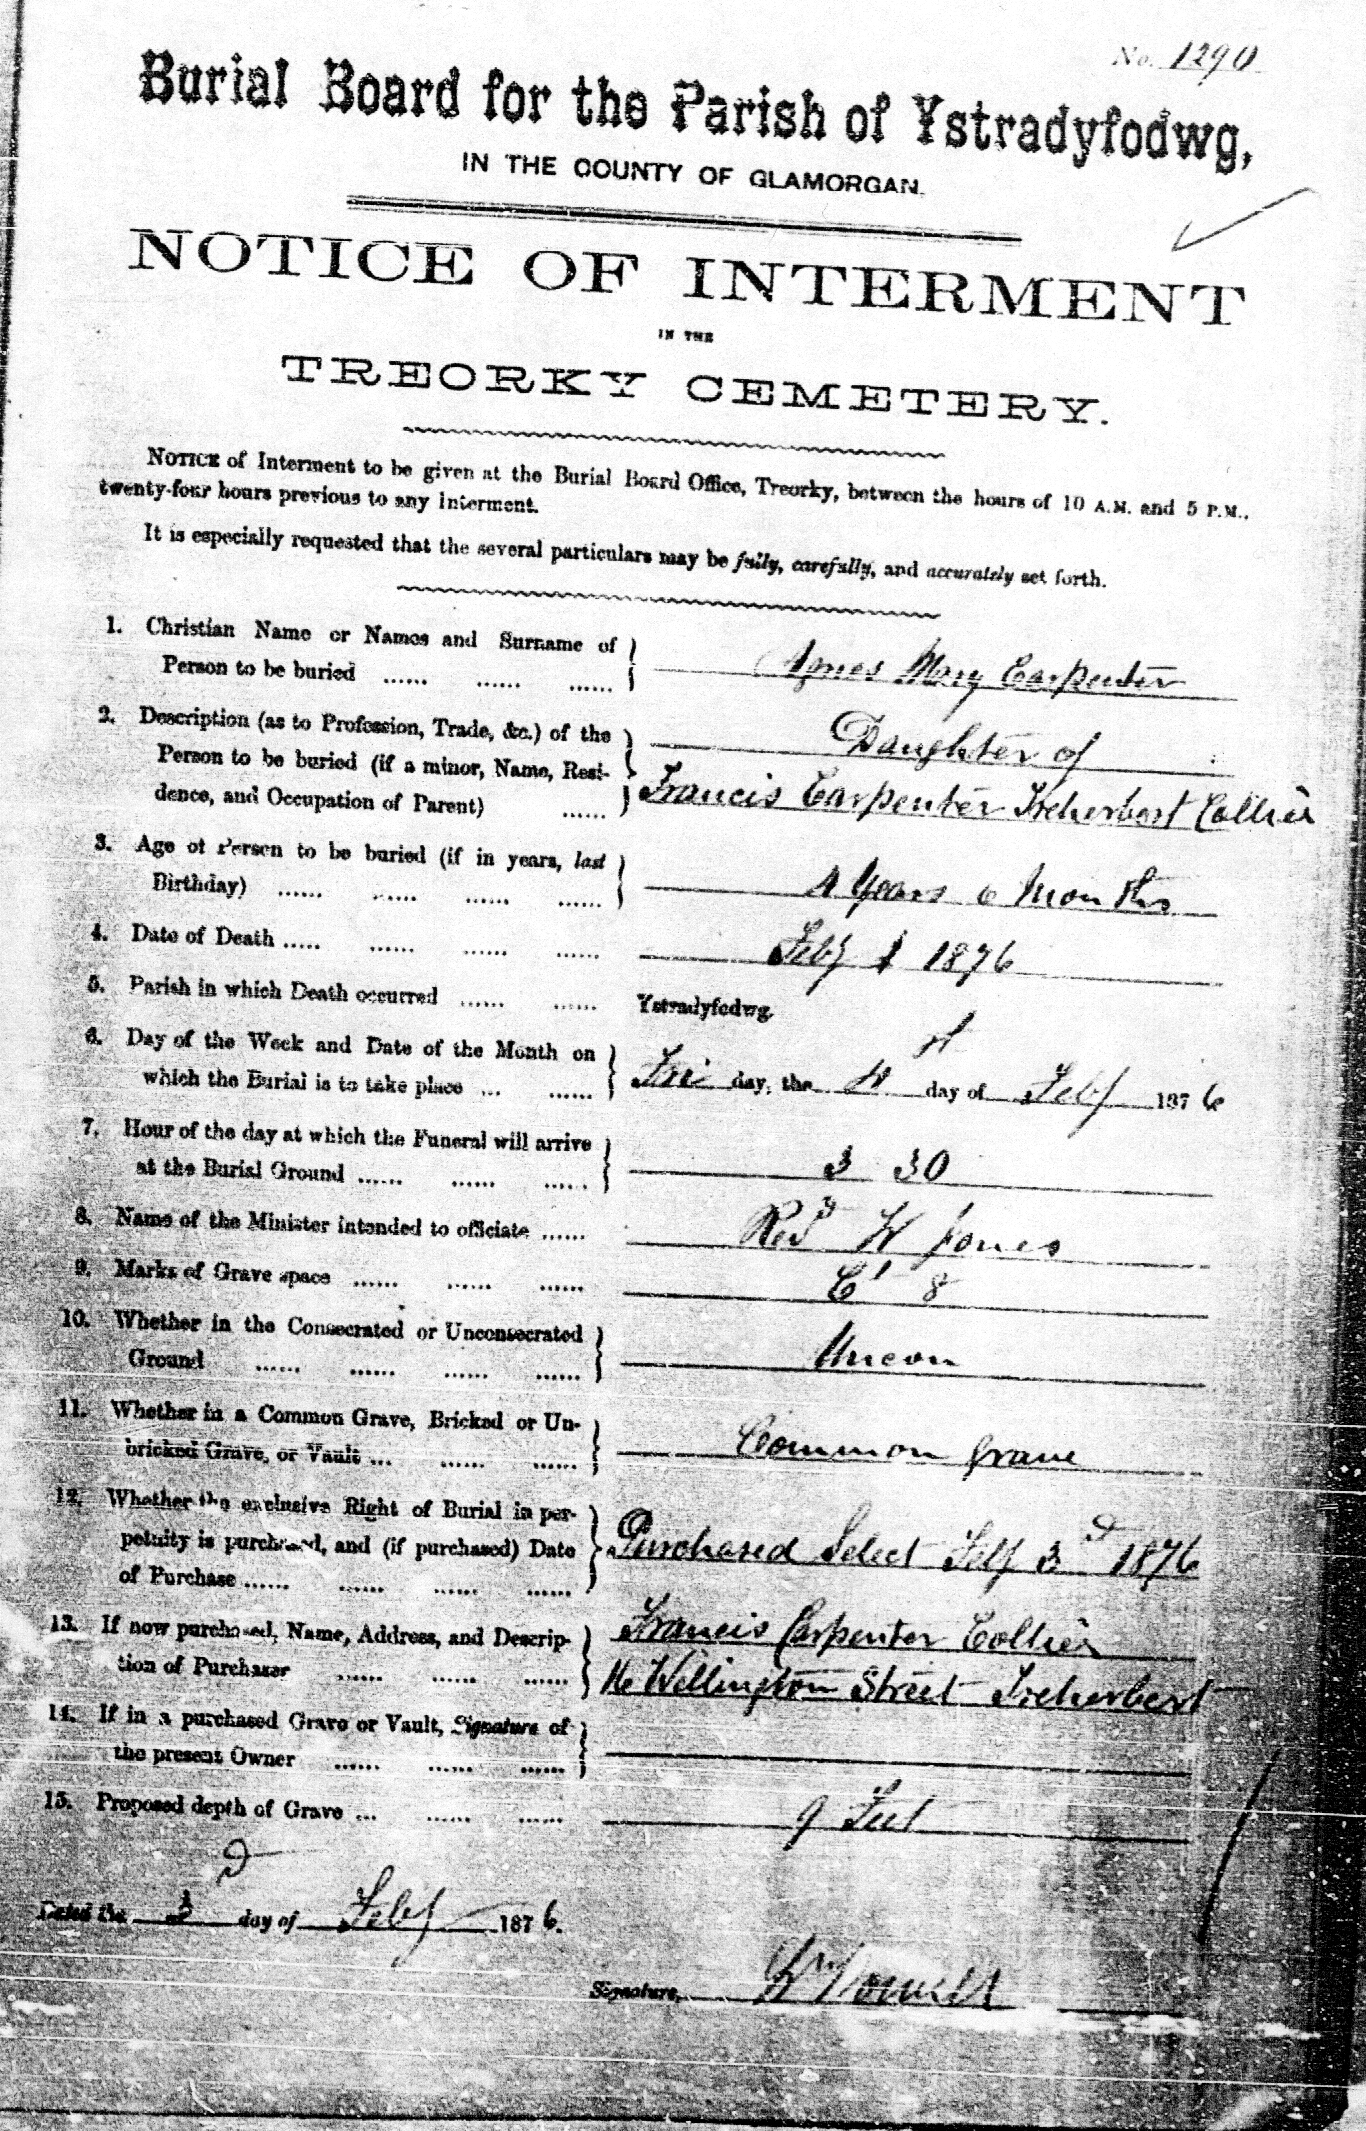 No. 1290
Burial Board for the Parish of Ystradyfodwg,
IN THE COUNTY OF GLAMORGAN.
NOTICE OF INTERMENT
IN THE
TREORKY CEMETERY.
NOTICE of Interment to be given at the Burial Board Office, Treorky, between the hours of 10 A.M. and 5 P.M.,
twenty-four hours previous to any Interment.
It is especially requested that the several particulars may be fully, carefully, and accurately set forth.
1. Christian Name or Names and Surname of
Person to be buried ...... ...... ...... Agnes Mary Carpenter
2. Description (as to Profession, Trade, &c.) of the Daughter of
Person to be buried (if a minor, Name, Resi-
dence, and Occupation of Parent) ...... Francis Carpenter Treherbert Collier
3. Age of Person to be buried (if in years, last
Birthday) ...... ...... ...... ...... 4 Years 6 Months
4. Date of Death ..... ...... ...... ...... Feby 1 1876
5. Parish in which Death occurred ...... ...... Ystradyfodwg.
6. Day of the Week and Date of the Month on
which the Burial is to take place ... ...... Fri day, the 4 day of Feby 1876
7. Hour of the day at which the Funeral will arrive
at the Burial Ground ...... ...... ...... 3 30
8. Name of the Minister intended to officiate ...... Revd W Jones
9. Marks of Grave space ...... ...... ...... C' 8
10. Whether in the Consecrated or Unconsecrated
Ground ...... ...... ...... ...... Uncon
11. Whether in a Common Grave, Bricked or Un-
bricked Grave, or Vault ... ...... ...... Common Grave
12. Whether the exclusive Right of Burial in per-
petuity is purchased, and (if purchased) Date
of Purchase ...... ...... ...... ...... Purchased Select Feby 3d 1876
13. If now purchased, Name, Address, and Descrip- Francis Carpenter Collier
tion of Purchaser ...... ...... ...... Wellington Street Treherbert
14. If in a purchased Grave or Vault, Signature of
the present Owner ...... ...... ......
15. Proposed depth of Grave ... ...... ...... 9 Feet
Dated the 3d day of Feby 1876.
Signature, Wm Powell